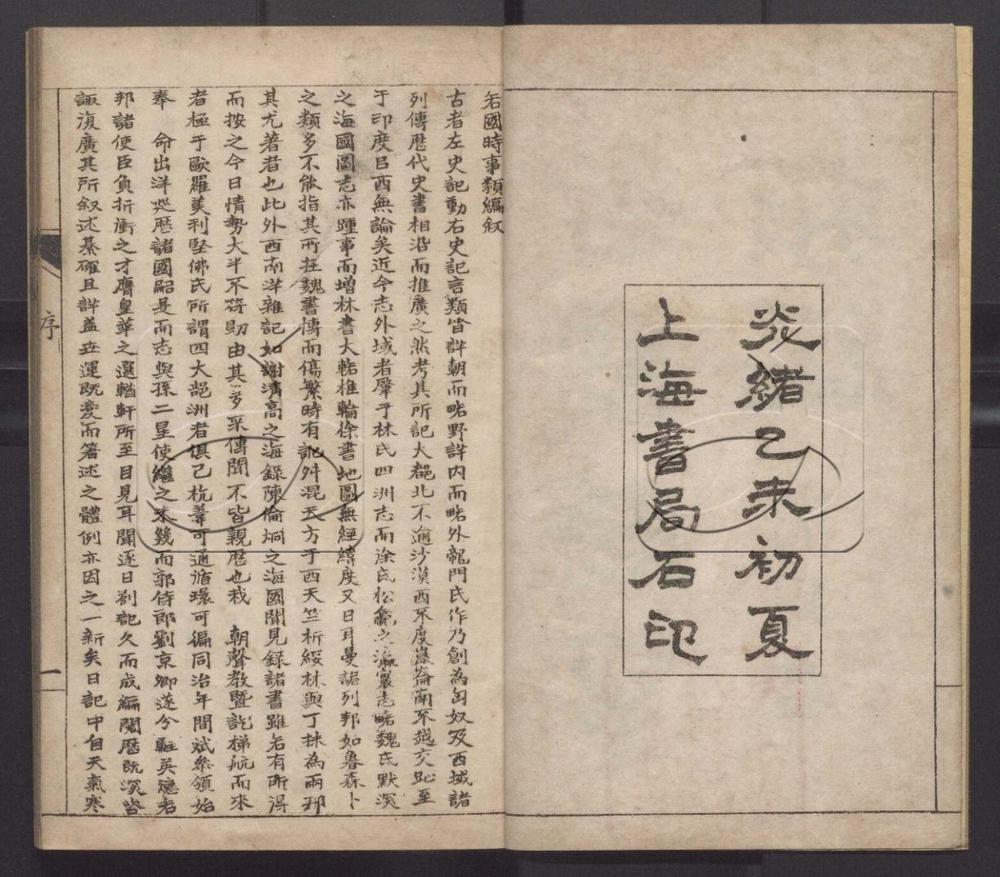 炗緒乙未初夏
上海書局石印
各國時事類編叙
古者左史記動右史記言類皆詳朝而略野詳内而略外龍門氏作乃創為匈奴及西域諸
列傳歷代史書相沿而推廣之然考其所記大槩北不逾沙漠西不度崑崙南不越交趾至
于印度㠯西無論矣近今志外域者肈于林氏四洲志而涂氏松龕之瀛寰志略魏氏默深
之海國圖志亦踵事而增林書大輅椎輪徐書地圖無經緯度又日耳曼諸列邦如魯森卜
之類多不能指其所在魏書愽而傷繁時有訛舛混天方于西天竺析綏林與丁抹為兩邦
其尤著者也此外西南洋雜記如謝清高之海錄陳倫烱之海國聞見錄諸書雖各有所得
而按之今日情勢大半不符則由其多采傳聞不皆親歷也我　朝聲教暨訖梯航而來
者極于歐羅美利堅佛氏所謂四大部洲者俱已杭葦可通循環可徧同治年間斌椿領始
奉　命出洋巡歷諸國嗣是而志與孫二星使繼之未幾而郭侍郎劉京卿遂分駐英德者
邦諸使臣負折衝之才膺皇華之選輶軒所至目見耳聞逐日劄記久而成編閱歷既深咨
諏復廣其所叙述綦確且詳蓋世運既變而箸述之體例亦因之一新矣日記中自天氣寒
序
一